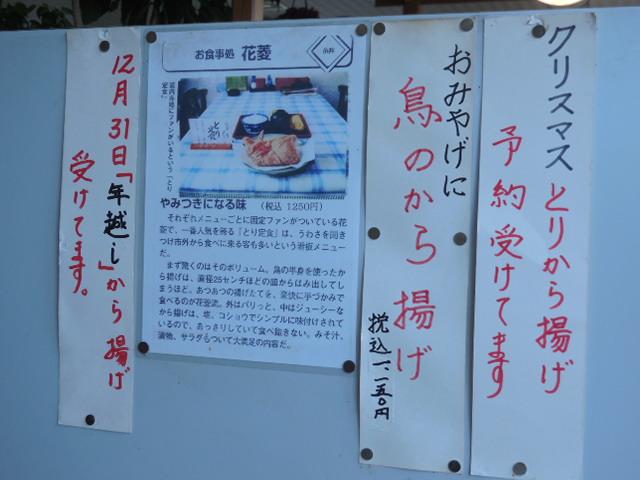 クリスマスとりから揚げ
予約受けてます
おみやげに
鳥のから揚げ
税込一、一五〇円
お食事処 花菱
小丼
道内各地にファンがいるという「とり
定食」
やみつきになる味 (税込 1250円)
それぞれメニューごとに固定ファンがついている花
菱で、一番人気を誇る『とり定食』は、うわさを聞き
つけ市外から食べに来る客も多いという看板メニュー
だ。
まず驚くのはそのボリューム。鳥の半身を使ったか
ら揚げは、直径25センチほどの皿からはみ出してし
まうほど。あつあつの揚げたてを、豪快に手づかみで
食べるのが花菱流。外はパリっと、中はジューシーな
から揚げは、塩、コショウでシンプルに味付けされて
いるので、あっさりしていて食べ飽きない。みそ汁、
漬物、サラダもついて大満足の内容だ。
12月31日「年越し」から揚げ
受けてます。